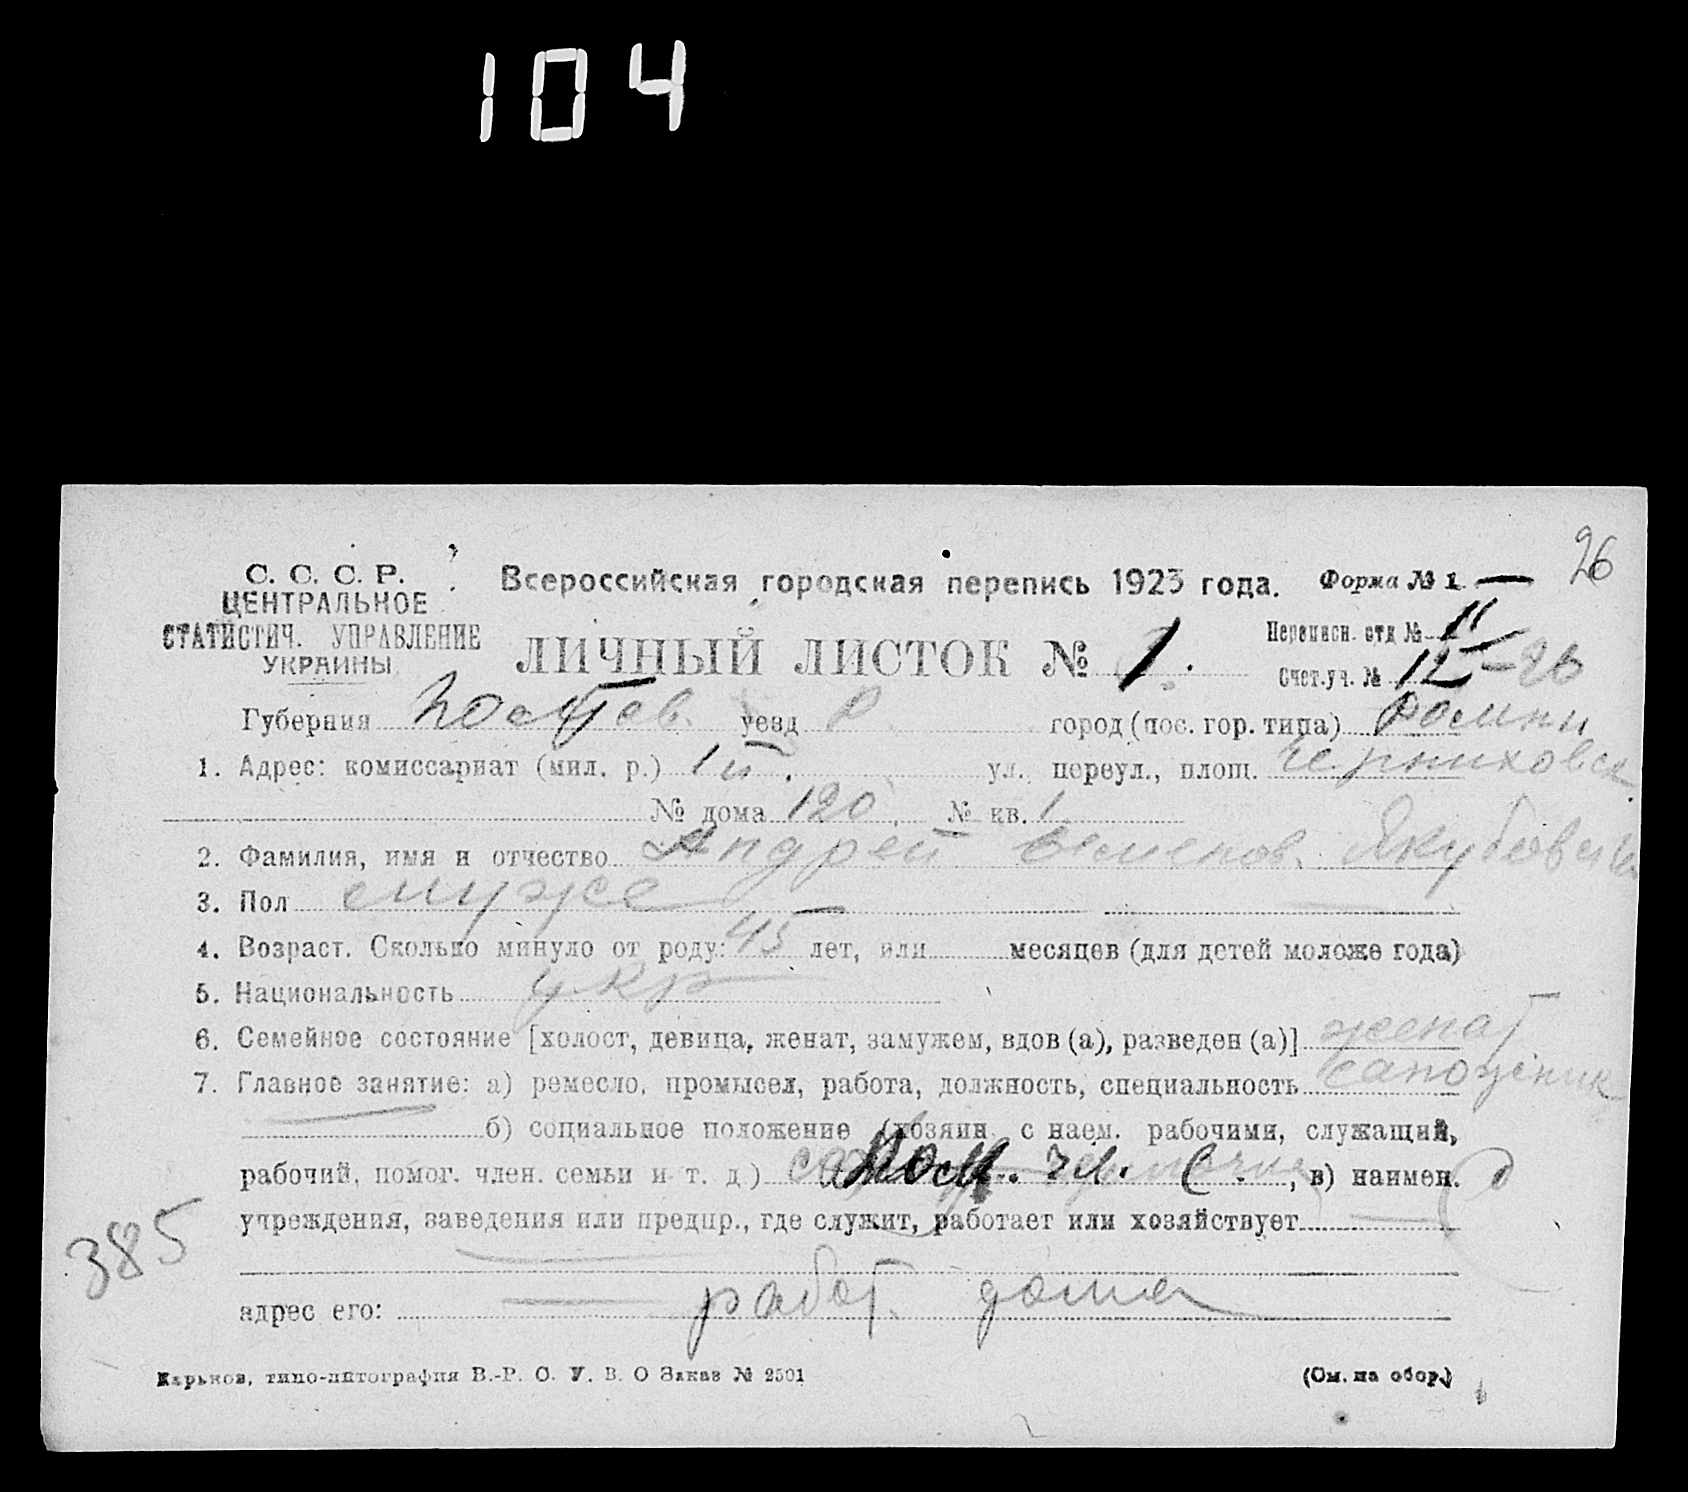 104
26
С. С. С. Р.
ЦЕНТРАЛЬНОЕ
СТАТИСТИЧ. УПРАВЛЕНИЕ
УКРАИНЫ
Всероссийская городская перепись 1923 года. Форма № 1
ЛИЧНЫЙ ЛИСТОК № 1.
Переписн. отд № 11
Счет.уч. № 12 - 26
Губерния Полтав. уезд Р город (пос. гор. типа) Ромни
1. Адрес: комиссариат (мил. р.) 1й. ул., переул., площ. Черниховск
№ дома 120, № кв. 1
2. Фамилия, имя и отчество Андрей Семенов. Якубовски
3. Пол муже
4. Возраст. Сколько минуло от роду: 45 лет, или месяцев (для детей моложе года)
5. Национальность укр
6. Семейное состояние [холост, девица, женат, замужем, вдов (а), разведен (а)] женат
7. Главное занятие: а) ремесло, промысел, работа, должность, специальность сапожник
б) социальное положение (хозяин с наем. рабочими, служащий,
рабочий, помог. член. семьи и т. д.) пом. чл. с., в) наимен.
учреждения, заведения или предпр., где служит, работает или хозяйствует
385
адрес его: работ. дома
Харьков, типо-литография В.-Р. С. У. В. О Заказ № 2501 (См. на обор.)